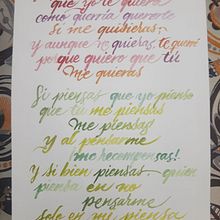 que yo te quiero
como querría quererte
si me quisieras;
y aunque no quieras, te quiero
porque quiero que tú
me quieras
Si piensas que yo pienso
que tú me piensas
me piensas
y al pensarme
me recompensas!
Y si bien piensas quien
piensa en no
pensarme
solo en mí piensa